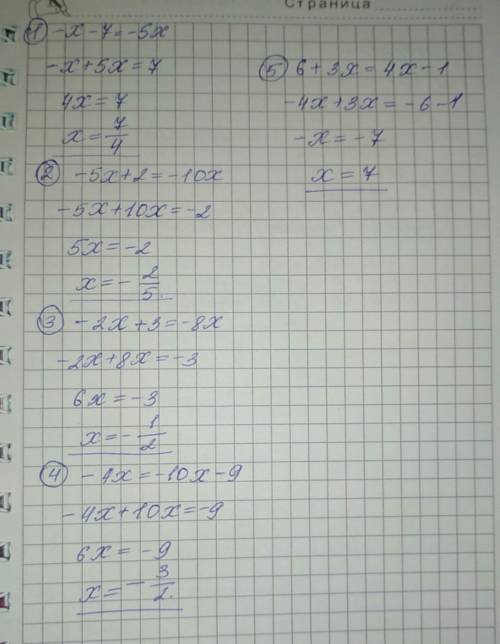 Страница
① -x-7=-5x
-x+5x=7
4x=7
x=7/4
② -5x+2=-10x
-5x+10x=-2
5x=-2
x=-2/5
③ -2x+3=-8x
-2x+8x=-3
6x=-3
x=-1/2
④ -4x=-10x-9
-4x+10x=-9
6x=-9
x=-3/2
⑤ 6+3x=4x-1
-4x+3x=-6-1
-x=-7
x=7